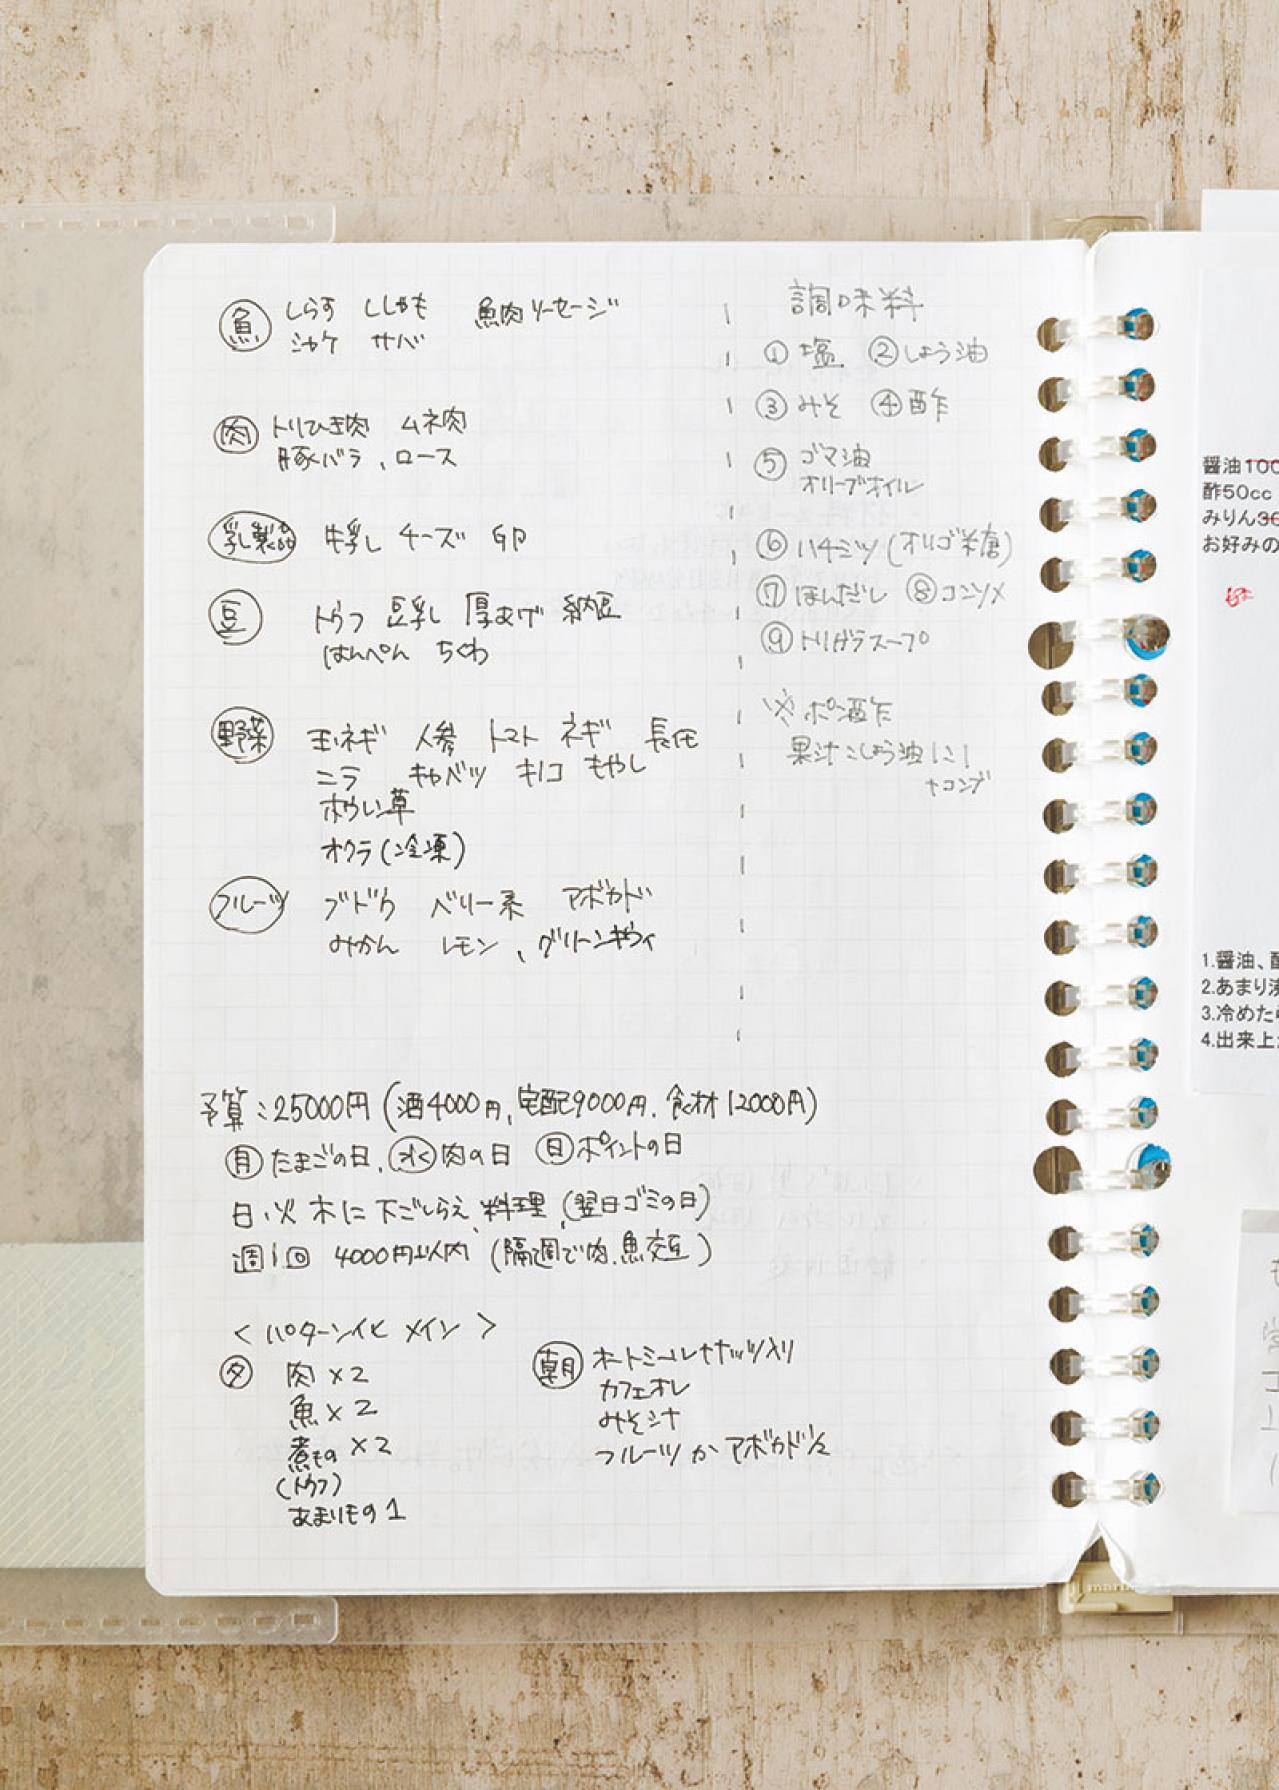 魚 しらす ししゃも 魚肉ソーセージ
シャケ サバ
肉 トリひき肉 ムネ肉
豚バラ、ロース
乳製品 牛乳 チーズ 卵
豆 トウフ 豆乳 厚あげ 納豆
はんぺん ちくわ
野菜 玉ネギ 人参 トマト ネギ 長芋
ニラ キャベツ キノコ もやし
ホウレン草
オクラ(冷凍)
フルーツ ブドウ ベリー系 アボカド
みかん レモン、グリーンキウイ
調味料
① 塩 ②しょう油
③ みそ ④酢
⑤ ゴマ油
オリーブオイル
⑥ ハチミツ(オリゴ糖)
⑦ ほんだし ⑧コンソメ
⑨ トリガラスープ
※ポン酢
果汁としょう油に!
+コンブ
予算:25000円(酒4000円、宅配9000円、食材12000円)
月たまごの日、水肉の日 日ポイントの日
日・火 木に下ごしらえ、料理(翌日ゴミの日)
週1回 4000円以内(隔週で肉、魚交互)
<パターン化 メイン>
夕 肉×2
魚×2
煮もの×2
(トウフ)
あまりもの1
朝 オートミールナッツ入り
カフェオレ
みそ汁
フルーツ か アボカド1/2
醤油100
酢50cc
みりん30
お好みの
1.醤油、酢
2.あまり凍
3.冷めたら
4.出来上